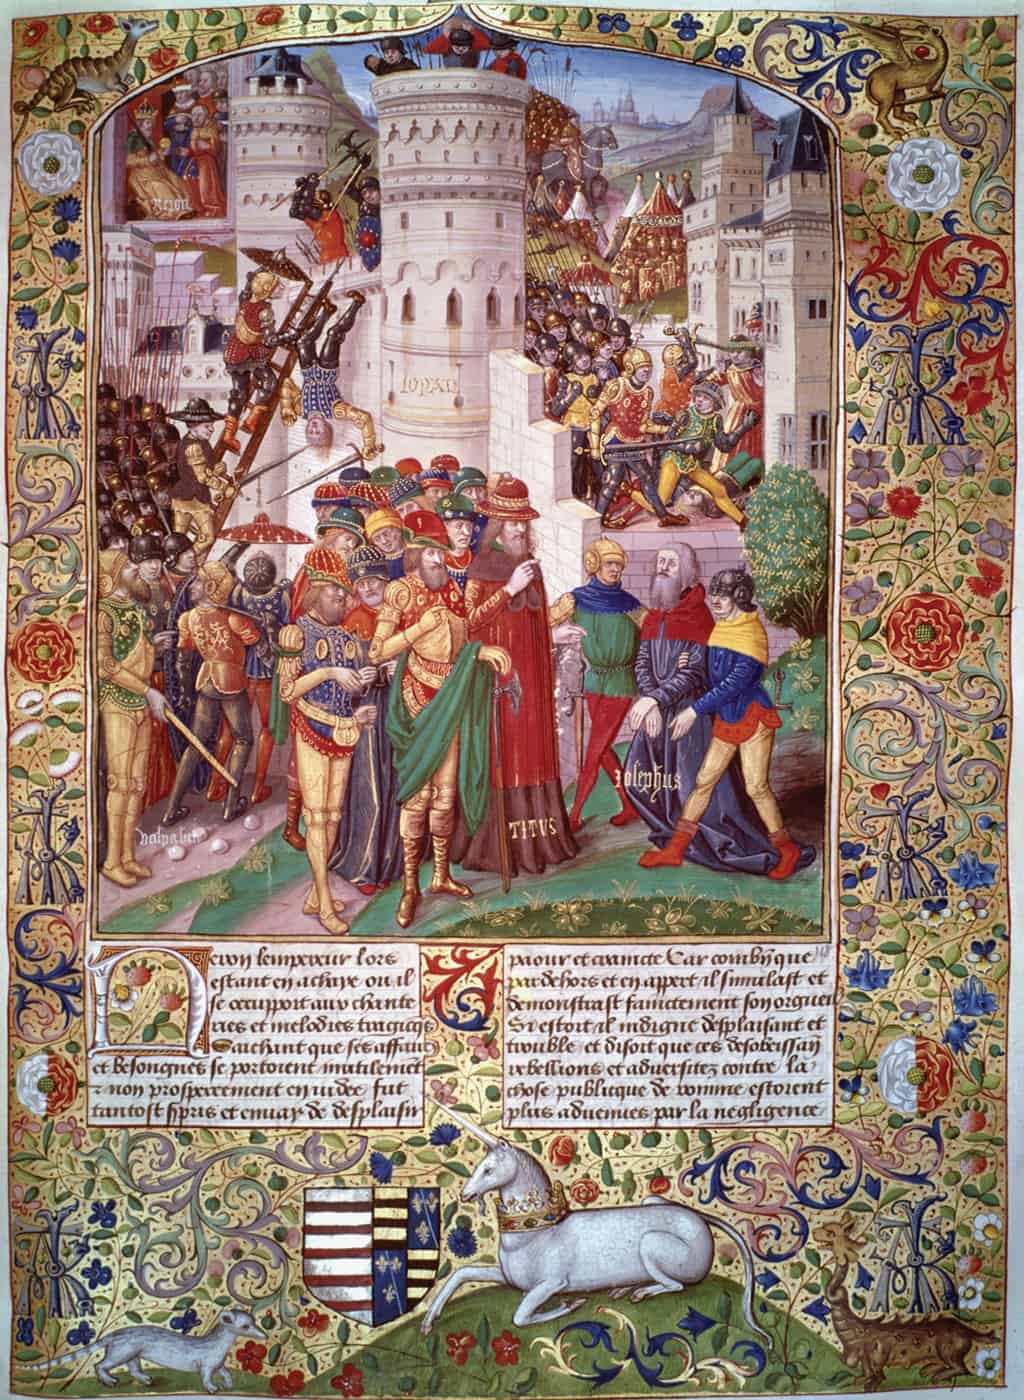 Neron
Iopata
TITUS
Iosephus
Neron lempereur lors
estant en achaye ou il
se occuppoit aux chante
ries et melodies tragicqs
Saichant que ses affair
et besongnes se portoient inutilemēt
non prosperement en iudee fut
tantost sspris et enuay de desplaisir
paour et craincte Car combiē que
par dehors et en appert il simulast et
demonstrast fainctement son orgueil
Si estoit il indigne desplaisant et
trouble et disoit que ces desobeissāces
rebellions et aduersitez contre la
chose publicque de romme estoient
plus aduenues par la negligence